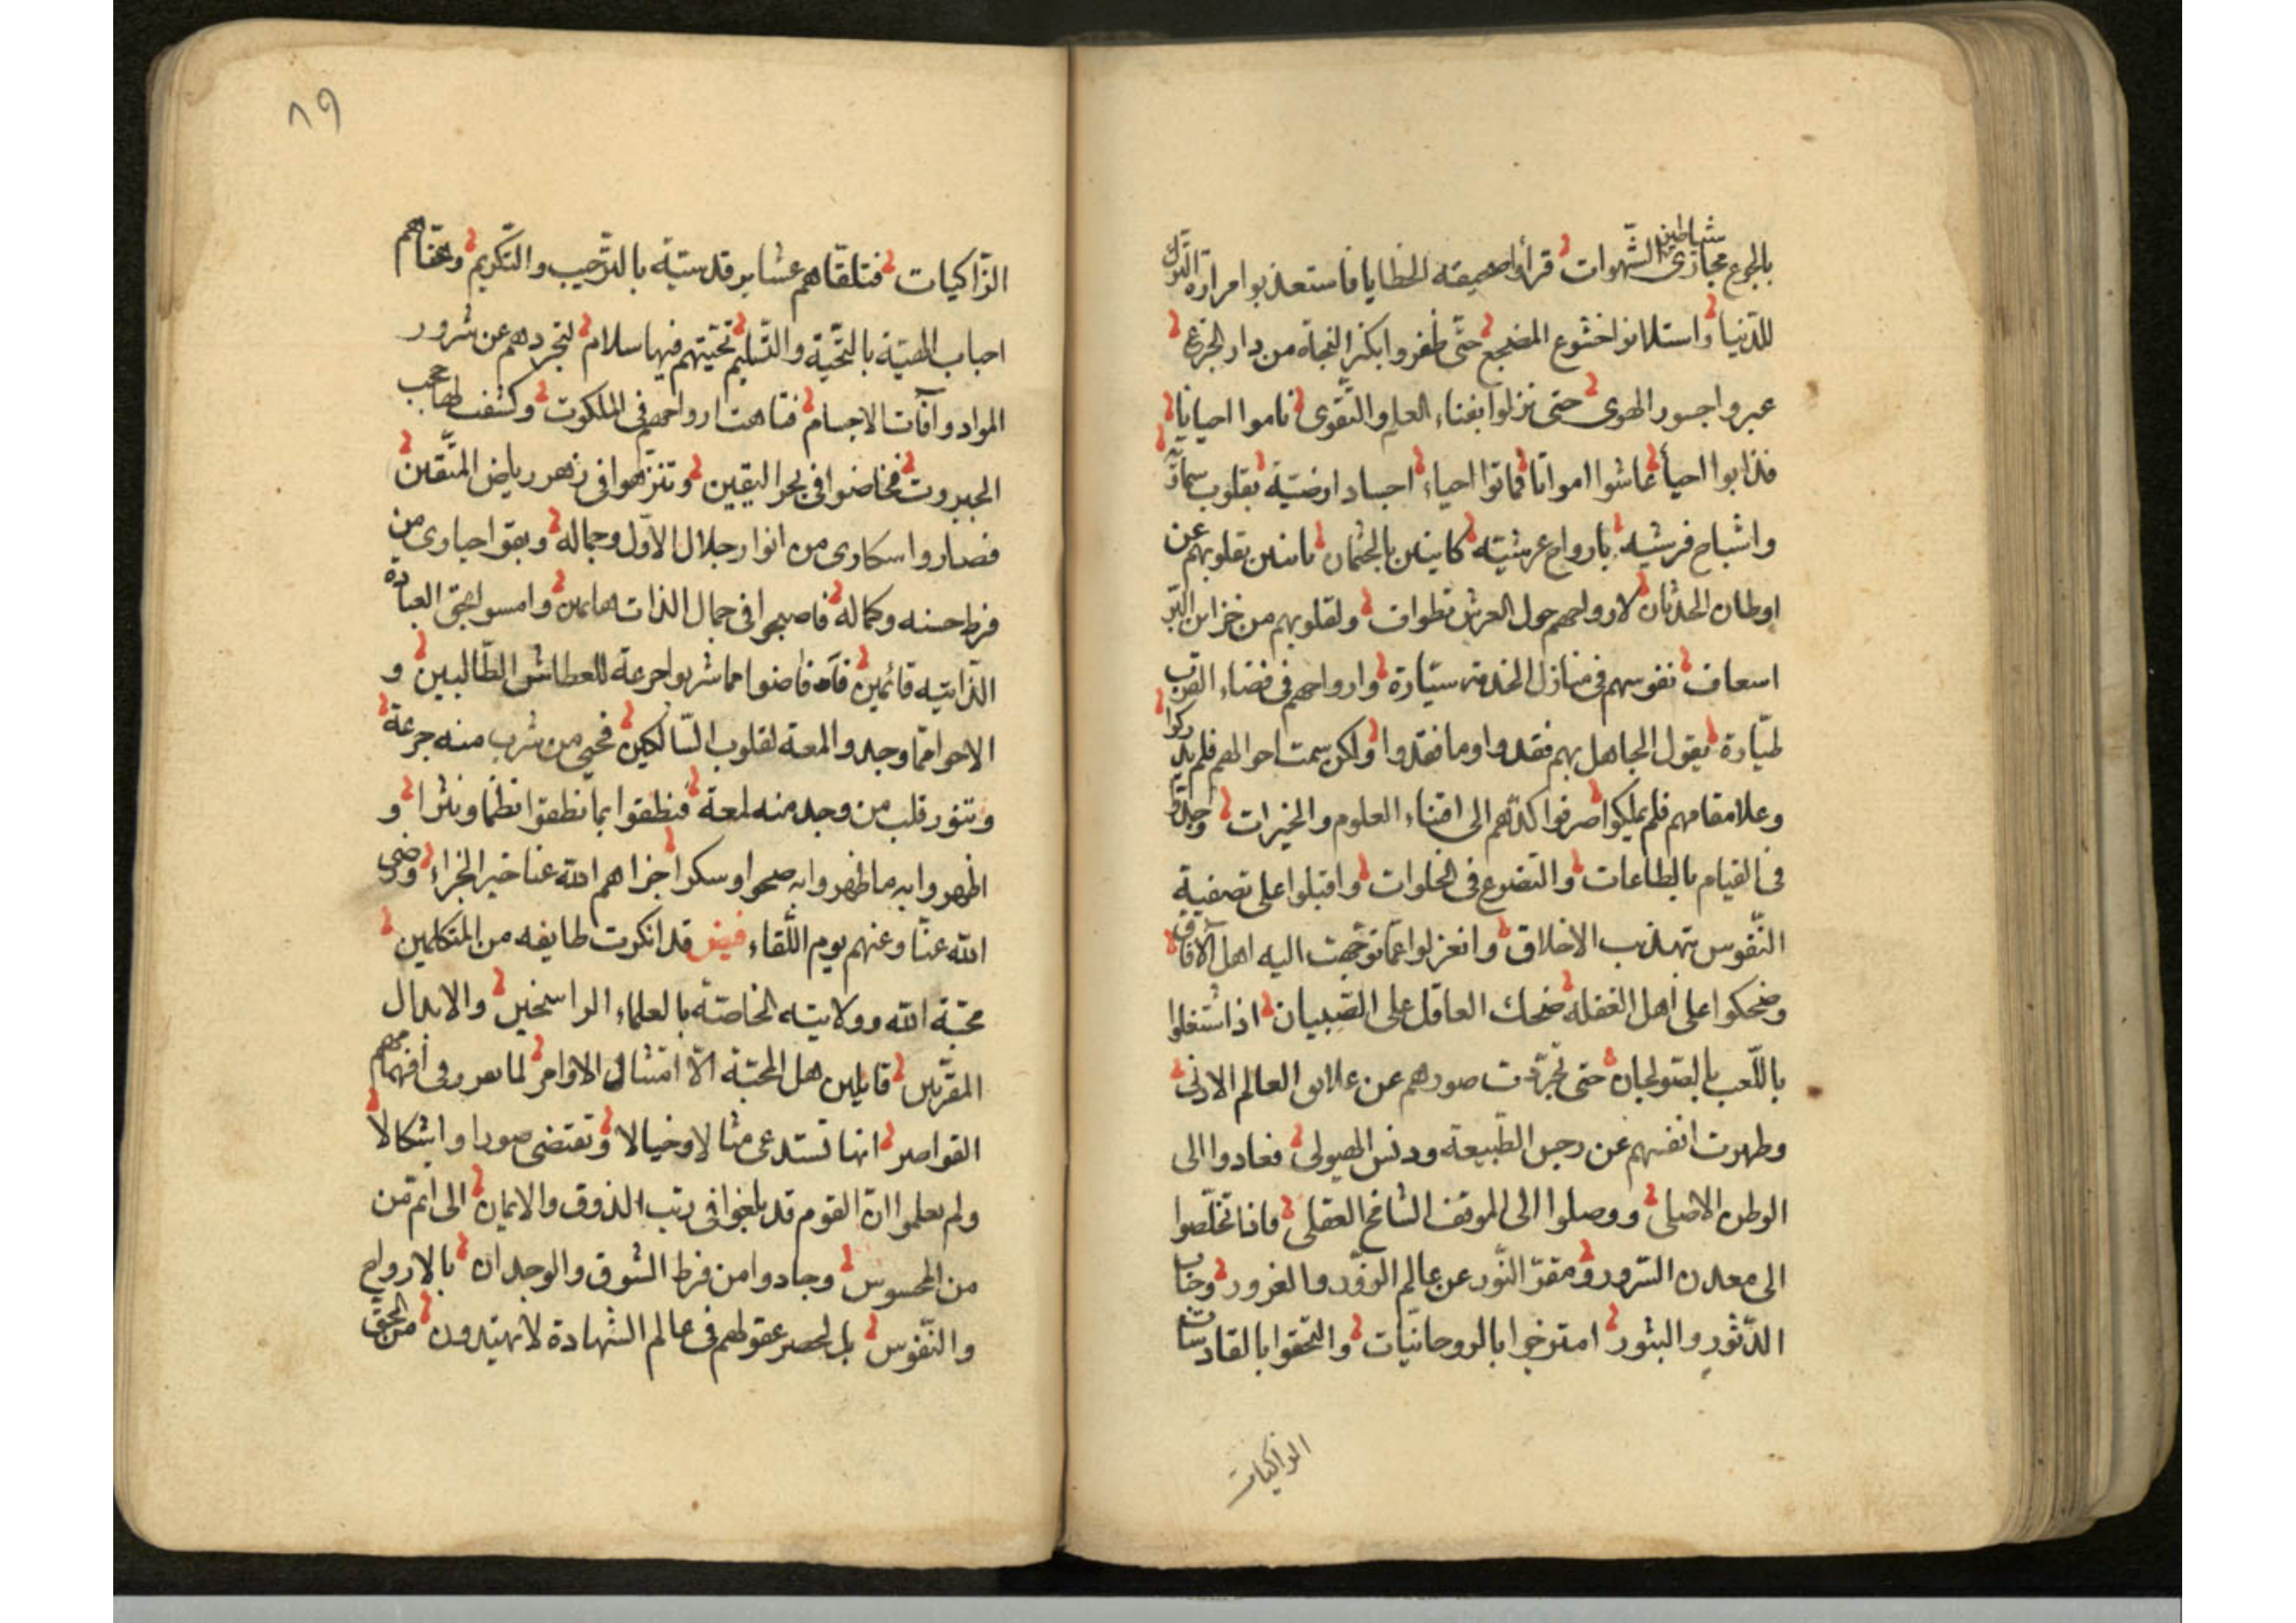 بالجوع مجازى شياطين الشّهوات قرأوا صحيفة الخطايا فاستعذبوا مرارة الترك
للدّنيا واستلانوا خشوع المضجع حتّى ظفروا بكنز النجاة من دار الجزع
عبروا جسور الهوى حتى نزلوا بفناء العلم والتّقوى ناموا احيانا
فذابوا احيأ عاشوا امواتا فماتوا احياء اجساد ارضيّة بقلوب سماويّة
واشباح فرشيه بارواح عرشيّه كاينين بالجثمان باينين بقلوبهم عن
اوطان الحدثان لارواحهم حول العرش تطواف ولقلوبهم من خزاين البرّ
اسعاف نفوسهم في منازل الخدمة سيّارة وارواحهم في فضاء القرب
طيّارة يقول الجاهل بهم فقدوا وما فقدوا ولكن سمت احوالهم فلم يدركوا
وعلا مقامهم فلم يملكوا صرفوا كدّهم الى اقتناء العلوم والخيرات
فى القيام بالطاعات والتضرع فى الخلوات واقبلوا على تصفية
النّفوس بتهذيب الاخلاق وانعزلوا عمّا توجّهت اليه اهل الآفاق
وضحكوا على اهل الغفلة ضحك العاقل على الصّبيان اذا شتغلوا
باللّعب بالصّولجان حتى تجرّدت صورهم عن علايق العالم الادنى
وطهرت انفسهم عن رجس الطّبيعة ودنس الهيولى فعادوا الى
الوطن الاصلى ووصلوا الى الموقف الشامخ العقلى فاذا تخلّصوا
الى معدن السّرور ومقرّ النّور عن عالم الزّور والغرور وجناب
الدّثور والبثور امتزجوا بالروحانيّات والتحقوا بالقادسات
الزاكيات
٨٩
الزّاكيات فتلقّاهم عشاير قدسيّة بالتّرحيب والتّكريم
احباب الهيّة بالتحيّة والتّسليم تحيّتهم فيها سلام لتجردهم عن شرور
المواد وآفات الاجسام فتاهت ارواحهم فى الملكوت وكشف لها حجب
الجبروت فخاضوا فى بحر اليقين وتنزّهوا فى زهر رياض المتّقين
فصاروا سكارى من انوار جلال الاوّل وجماله وبقوا حيارى من
فرط حسنه وكماله فاصبحوا فى جمال الذات هايمين وامسوا بحق العبادة
الذّاتيه قائمين فآه فاضوا مما شربوا جرعة للعطاش الطّالبين و
الاحوا ممّا وجدوا لمعة لقلوب السّالكين فحيى من شرب منه جرعة
وتنوّر قلب من وجد منه لمعة فنطقوا بما نطقوا نظما ونثرا و
اظهروا به ما ظهروا به صحوا وسكرا جزاهم الله عنا خير الجزاء ورضى
الله عنّا وعنهم يوم اللّقاء فيض قد انكرت طايفه من المتكلمين
محبّة الله وولايته الخاصّة بالعلماء الراسخين والابدال
المقرّبين قايلين هل المحبّة الّا امتثال الاوامر لما يعرو فى افهامهم
القواصر انها تستدعى مثالا وخيالا وتقتضى صورا واشكالا
ولم يعلموا انّ القوم قد بلغوا فى رتب الذوق والايمان الى اتمّ من
من المحسوس وجادوا من فرط الشوق والوجدان بالارواح
والنّفوس بل لحصر عقولهم فى عالم الشهادة لا يهتدون من الحقّ